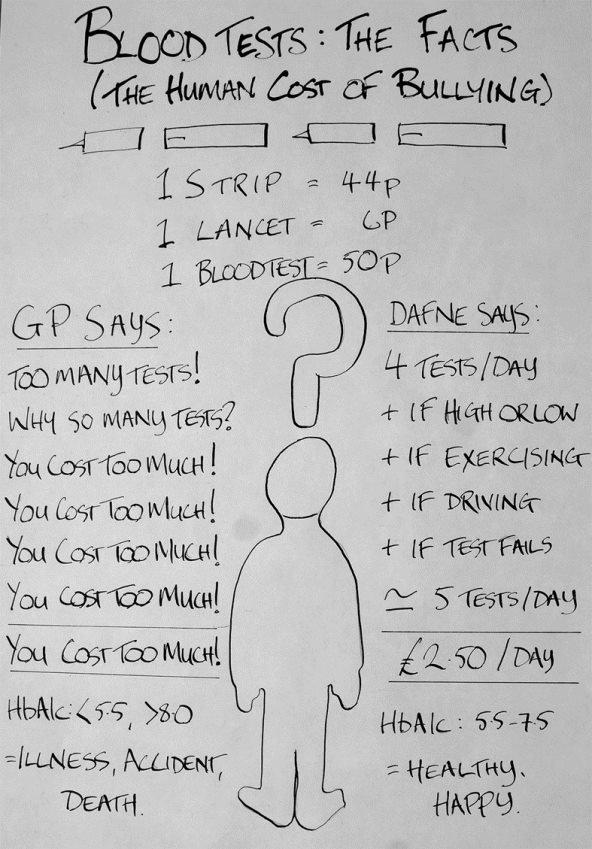 BLOOD TESTS: THE FACTS
(THE HUMAN COST OF BULLYING)
1 STRIP = 44P
1 LANCET = 6P
1 BLOODTEST = 50P
GP SAYS:
TOO MANY TESTS!
WHY SO MANY TESTS?
YOU COST TOO MUCH!
YOU COST TOO MUCH!
YOU COST TOO MUCH!
YOU COST TOO MUCH!
YOU COST TOO MUCH!
HbA1c: <5.5, >8.0
=ILLNESS, ACCIDENT,
DEATH.
?
DAFNE SAYS:
4 TESTS/DAY
+ IF HIGH OR LOW
+ IF EXERCISING
+ IF DRIVING
+ IF TEST FAILS
≃ 5 TESTS/DAY
£2.50/DAY
HbA1c: 5.5-7.5
= HEALTHY.
HAPPY.